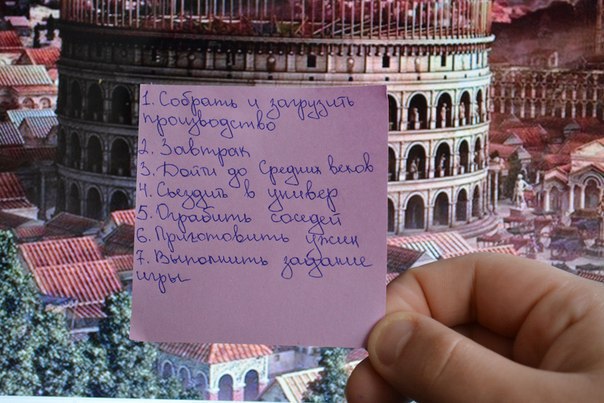 1. Собрать и загрузить
производство
2. Завтрак
3. Дойти до Средних веков
4. Съездить в универ
5. Ограбить соседей
6. Приготовить ужин
7. Выполнить задание
игры